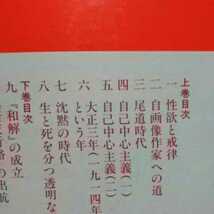 上巻目次
一 性欲と戒律
二 自画像作家への道
三 尾道時代
四 自己中心主義（一）
五 自己中心主義（二）
六 大正三年（一九一四年
という年
七 沈黙の時代
八 生と死を分つ透明な
下巻目次
九 『和解』の成立